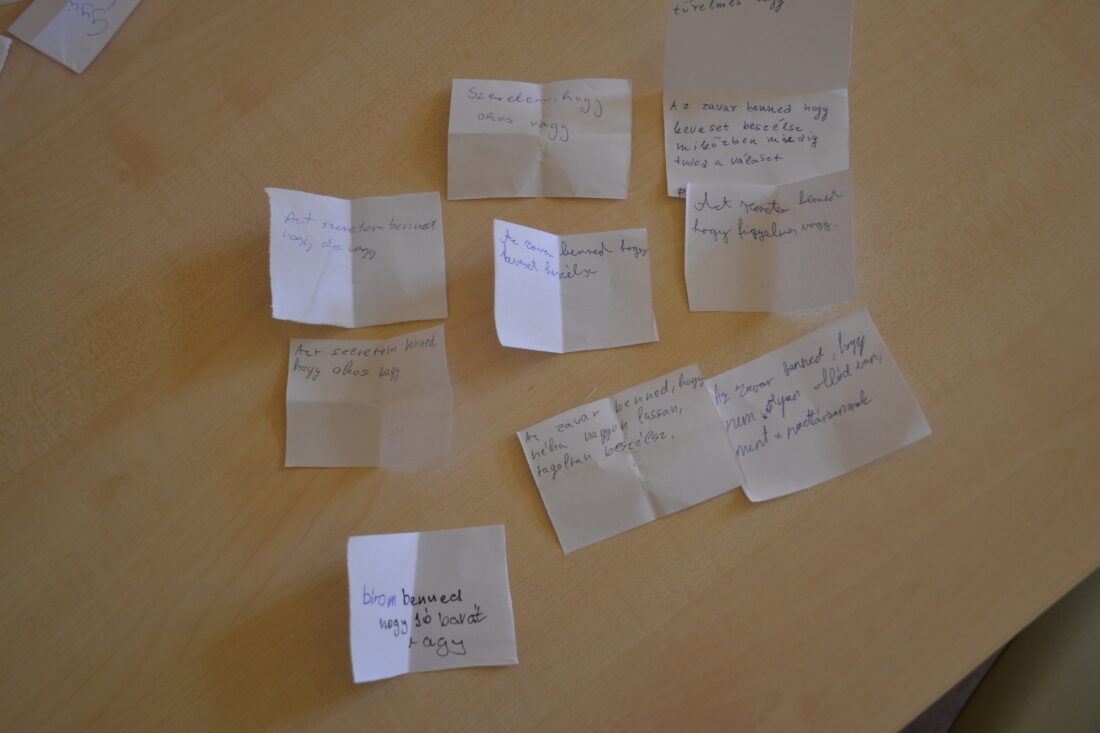 türelmes vagy
Szeretem, hogy
okos vagy
Az zavar benned hogy
keveset beszélsz
miközben mindig
tudod a választ
Azt szeretem benned
hogy vagy
Az zavar benned hogy
keveset beszélsz
Azt szeretem benned
hogy figyelmes vagy.
Azt szeretem benned,
hogy okos vagy
Az zavar benned, hogy
néha nagyon lassan,
tagoltan beszélsz.
Az zavar benned, hogy
nem olyan ollód van,
mint a padtársamnak
bírom benned
hogy jó barát
vagy